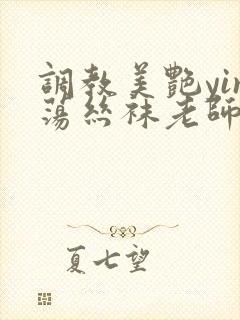 調教美艷yin
蕩絲袜老師
夏七望